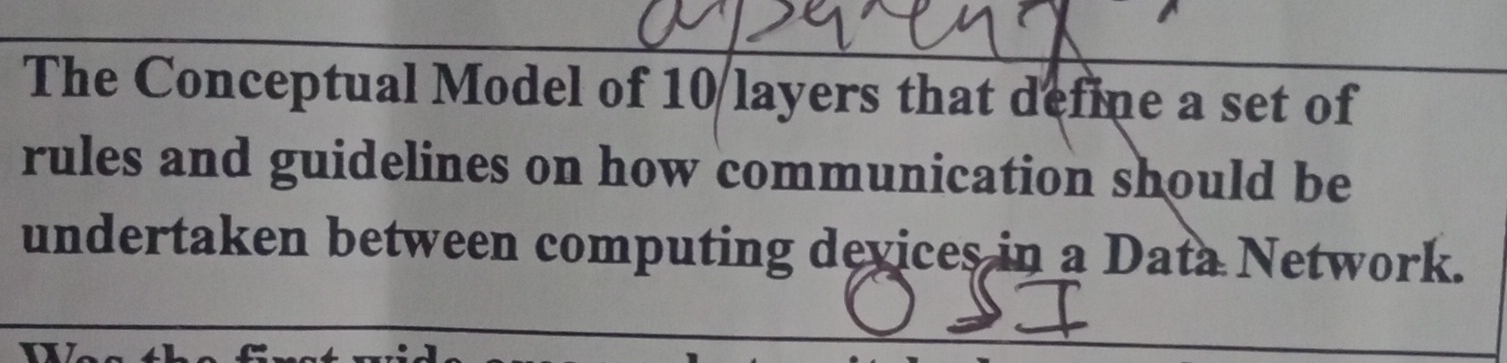 The Conceptual Model of 10 layers that define a set of
rules and guidelines on how communication should be
undertaken between computing devices in a Data Network.
OSI
Was the first wide